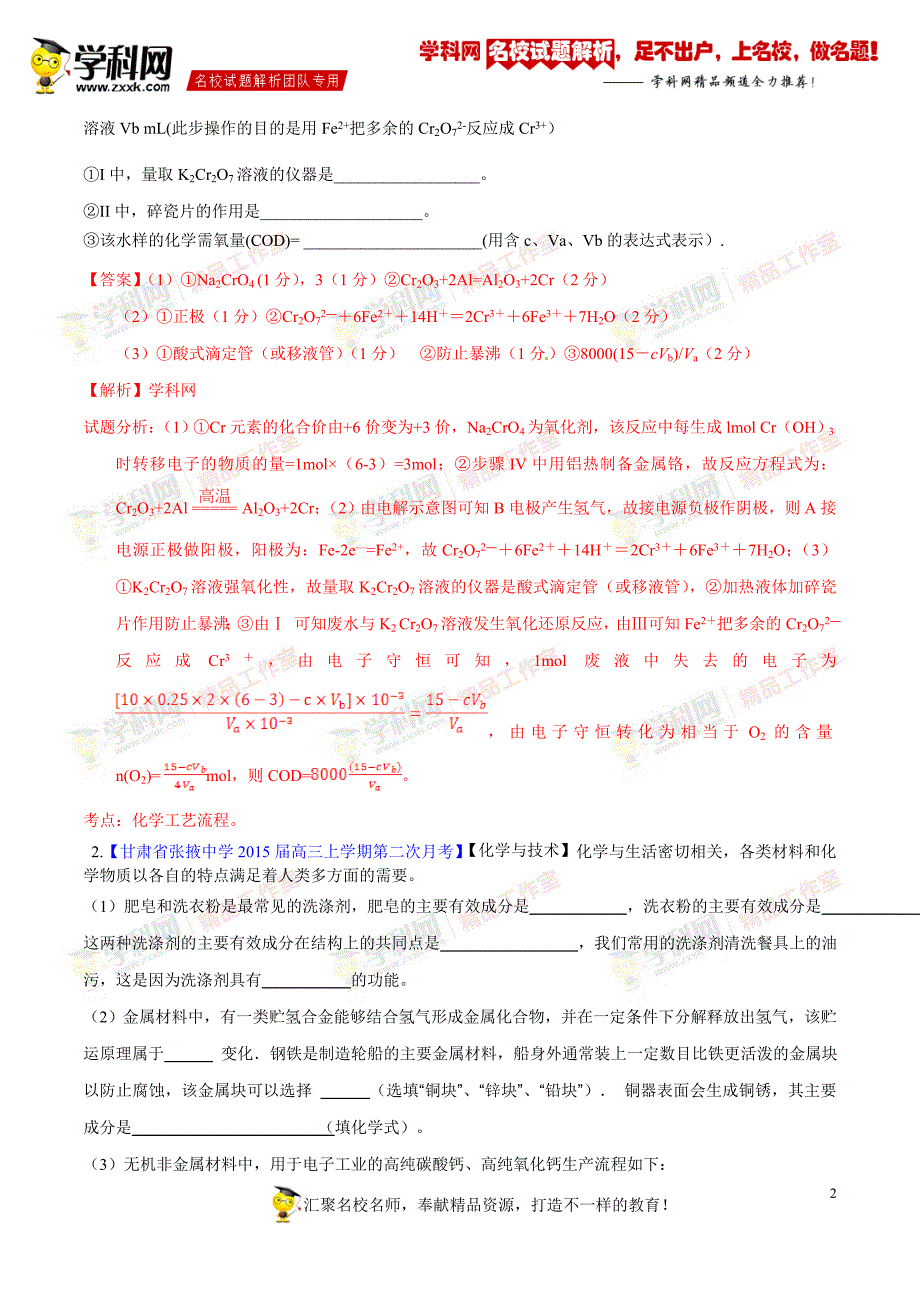 学科网
www.zxxk.com
名校试题解析团队专用
学科网 名校试题解析，足不出户，上名校，做名题！
—— 学科网精品频道全力推荐！
溶液 Vb mL(此步操作的目的是用 Fe²⁺把多余的 Cr₂O₇²⁻反应成 Cr³⁺）
①I 中，量取 K₂Cr₂O₇ 溶液的仪器是__________________。
②II 中，碎瓷片的作用是____________________。
③该水样的化学需氧量(COD)= ______________________(用含 c、Va、Vb 的表达式表示）.
【答案】（1）①Na₂CrO₄ (1 分)，3（1 分）②Cr₂O₃+2Al=Al₂O₃+2Cr（2 分）
（2）①正极（1 分）②Cr₂O₇²⁻＋6Fe²⁺＋14H⁺＝2Cr³⁺＋6Fe³⁺＋7H₂O（2 分）
（3）①酸式滴定管（或移液管）（1 分） ②防止暴沸（1 分）③8000(15－cVb)/Va（2 分）
【解析】学科网
试题分析：（1）①Cr 元素的化合价由+6 价变为+3 价，Na₂CrO₄ 为氧化剂，该反应中每生成 lmol Cr（OH）₃
时转移电子的物质的量=1mol×（6-3）=3mol；②步骤 IV 中用铝热制备金属铬，故反应方程式为：
Cr₂O₃+2Al =高温= Al₂O₃+2Cr；（2）由电解示意图可知 B 电极产生氢气，故接电源负极作阴极，则 A 接
电源正极做阳极，阳极为：Fe-2e⁻=Fe²⁺，故 Cr₂O₇²⁻＋6Fe²⁺＋14H⁺＝2Cr³⁺＋6Fe³⁺＋7H₂O；（3）
①K₂Cr₂O₇ 溶液强氧化性，故量取 K₂Cr₂O₇ 溶液的仪器是酸式滴定管（或移液管），②加热液体加碎瓷
片作用防止暴沸；③由Ⅰ 可知废水与 K₂Cr₂O₇ 溶液发生氧化还原反应，由Ⅲ可知 Fe²⁺把多余的 Cr₂O₇²⁻
反应成 Cr³⁺，由电子守恒可知，1mol 废液中失去的电子为
[10×0.25×2×(6－3)－c×Vb]×10⁻³/(Va×10⁻³)=(15－cVb)/Va，由电子守恒转化为相当于 O₂ 的含量
n(O₂)=(15－cVb)/(4Va)mol，则 COD=8000(15－cVb)/Va。
考点：化学工艺流程。
2.【甘肃省张掖中学 2015 届高三上学期第二次月考】【化学与技术】化学与生活密切相关，各类材料和化
学物质以各自的特点满足着人类多方面的需要。
（1）肥皂和洗衣粉是最常见的洗涤剂，肥皂的主要有效成分是____________，洗衣粉的主要有效成分是____________
这两种洗涤剂的主要有效成分在结构上的共同点是_________________，我们常用的洗涤剂清洗餐具上的油
污，这是因为洗涤剂具有___________的功能。
（2）金属材料中，有一类贮氢合金能够结合氢气形成金属化合物，并在一定条件下分解释放出氢气，该贮
运原理属于______ 变化．钢铁是制造轮船的主要金属材料，船身外通常装上一定数目比铁更活泼的金属块
以防止腐蚀，该金属块可以选择 ______（选填“铜块”、“锌块”、“铅块”）． 铜器表面会生成铜锈，其主要
成分是________________________（填化学式）。
（3）无机非金属材料中，用于电子工业的高纯碳酸钙、高纯氧化钙生产流程如下：
汇聚名校名师，奉献精品资源，打造不一样的教育！
2